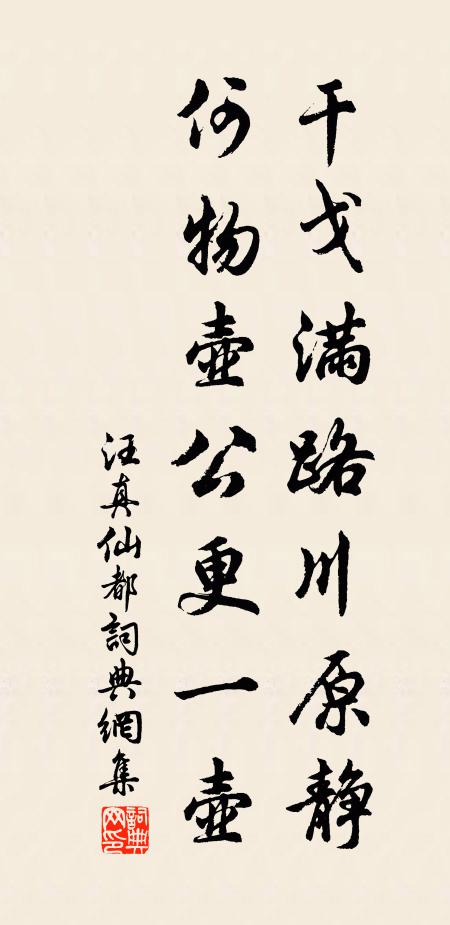 干戈满路川原静
何物壶公更一壶
汪真仙都詞典網集
詞典網印